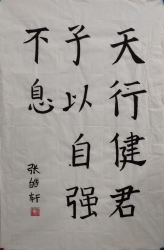 天行健君
子以自强
不息
张皓轩